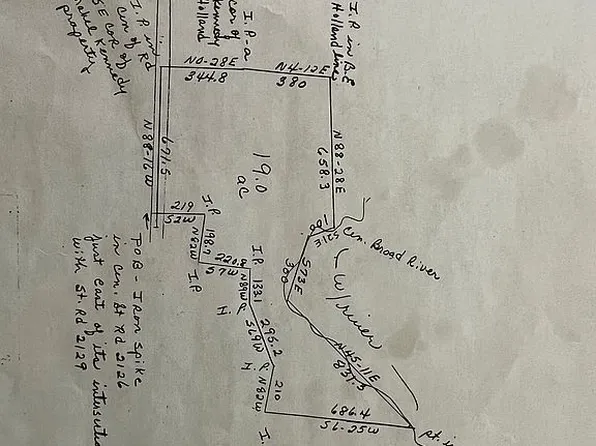 I.P. in
cen of Rd
SE cor of
Mabel Kennedy
property
I.P. - a
cor of
Kennedy
Holland
I.P. in B.E
Holland line
N0-28E
344.8
N4-12E
380
N88-28E
658.3
N88-16W
691.5
19.0
ac
100
S21E
Cen. Broad River
S73E
300
W/river
N45-11E
831.5
219
S2W
I.P.
198.7
N82W
I.P.
220.8
S7W
I.P.
133.1
N89W
296.2
S69W
210
N82W
686.4
S6-25W
pt. i
POB - Iron Spike
in cen. St Rd 2126
just east of its intersecti
with St. Rd 2129